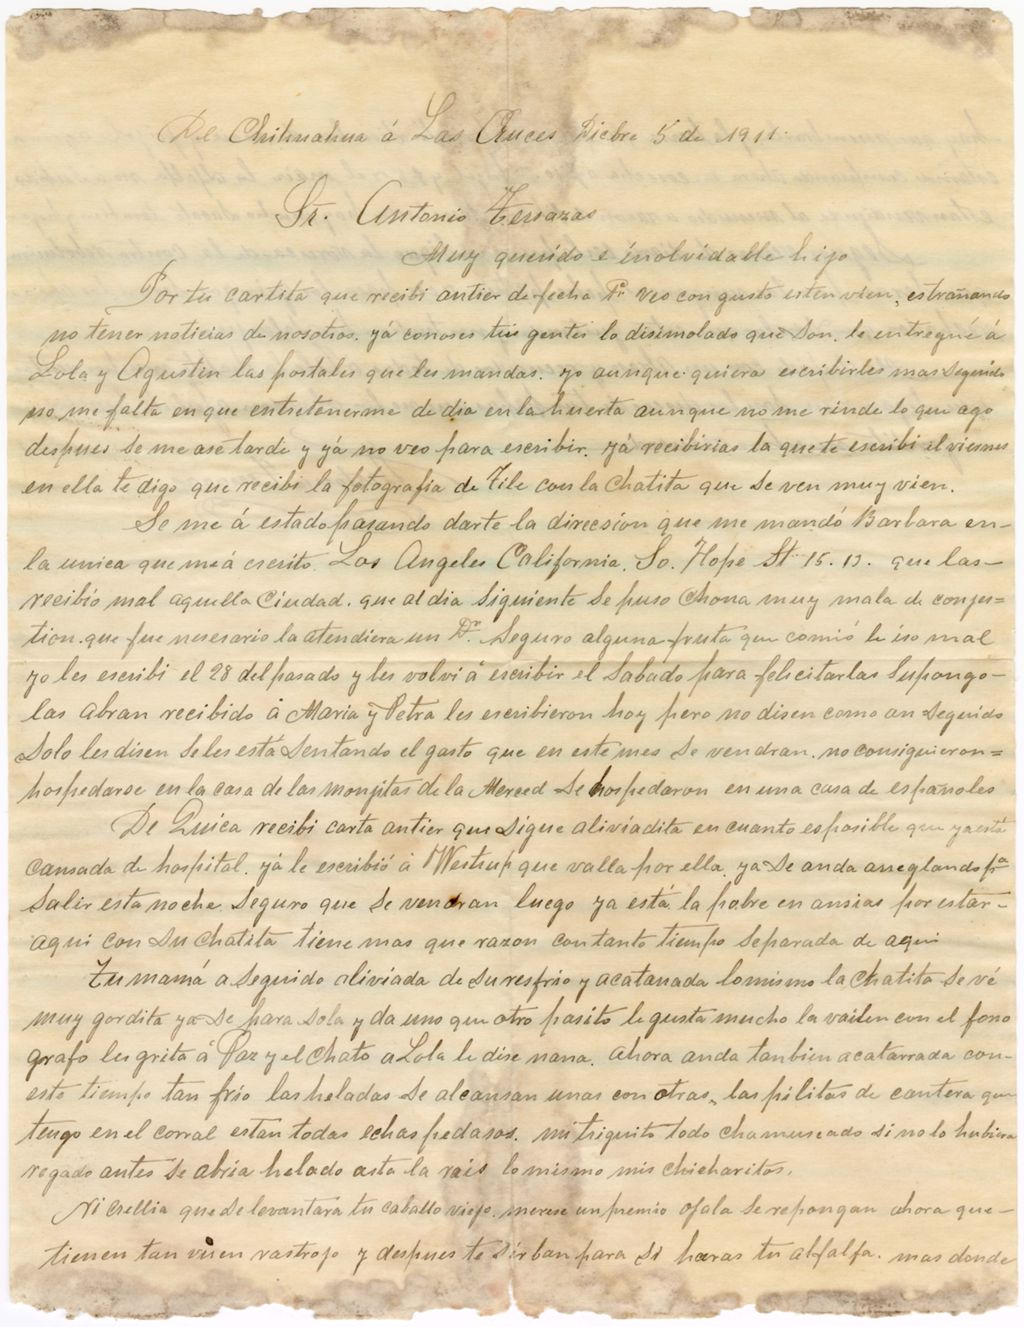 De Chihuahua á Las Cruces Dicbre 5 de 1911.
Sr. Antonio Terrazas
Muy querido e inolvidable hijo
Por tu cartita que recibi antier de fecha 1º veo con gusto esten vien, estrañando
no tener noticias de nosotros. yá conoses tus gentes lo disimolado que son. le entregué á
Lola y Agustin las postales que les mandas. yo aunque quiera escribirles mas seguido
no me falta en que entretenerme de dia en la huerta aunque no me rinde lo que ago
despues se me ase tarde y yá no veo para escribir. yá recibirias la que te escribi el viernes
en ella te digo que recibi la fotografia de Tile con la Chatita que se ven muy vien.
Se me á estado pasando darte la direcsion que me mandó Barbara en-
la unica que me á escrito. Los Angeles California. So. Hope St. 15.13. que las-
recibio mal aquella Ciudad. que al dia siguiente se puso Chona muy mala de conges=
tion. que fue nesesario la atendiera un Dr. Seguro alguna fruta que comió le iso mal
yo les escribi el 28 del pasado y les volvi á escribir el Sabado para felicitarlas Supongo-
las abran recibido á Maria y Petra les escribieron hoy pero no disen como an seguido
solo les disen se les está sentando el gasto que en este mes se vendran. no consiguieron=
hospedarse en la casa de las monjitas de la Merced se hospedaron en una casa de españoles
De Quica recibi carta antier que sigue aliviadita en cuanto es posible que ya está
cansada de hospital. yá le escribió á Westrup que valla por ella. ya se anda arreglando pa
salir esta noche seguro que se vendran luego ya está la pobre en ansias por estar-
aqui con su chatita tiene mas que razon con tanto tiempo separada de aqui
Tu mamá a seguido aliviada de su resfrio y acatarrada lo mismo la Chatita se vé
muy gordita ya se para sola y da uno que otro pasito le gusta mucho la vailen con el fono
grafo les grita á Paz y el Chato a Lola le dise nana. Ahora anda tanbien acatarrada con-
este tiempo tan frio las heladas se alcansan unas con otras, las pilitas de cantera que
tengo en el corral estan todas echas pedasos. mi triguito todo chamuscado si no lo hubiera
regado antes se abria helado asta la rais lo mismo mis chicharitos.
Ni crellia que se levantara tu caballo viejo. merese un premio ojala se repongan ahora que-
tienen tan vuen rastrojo y despues te sirban para si haras tu alfalfa. mas donde